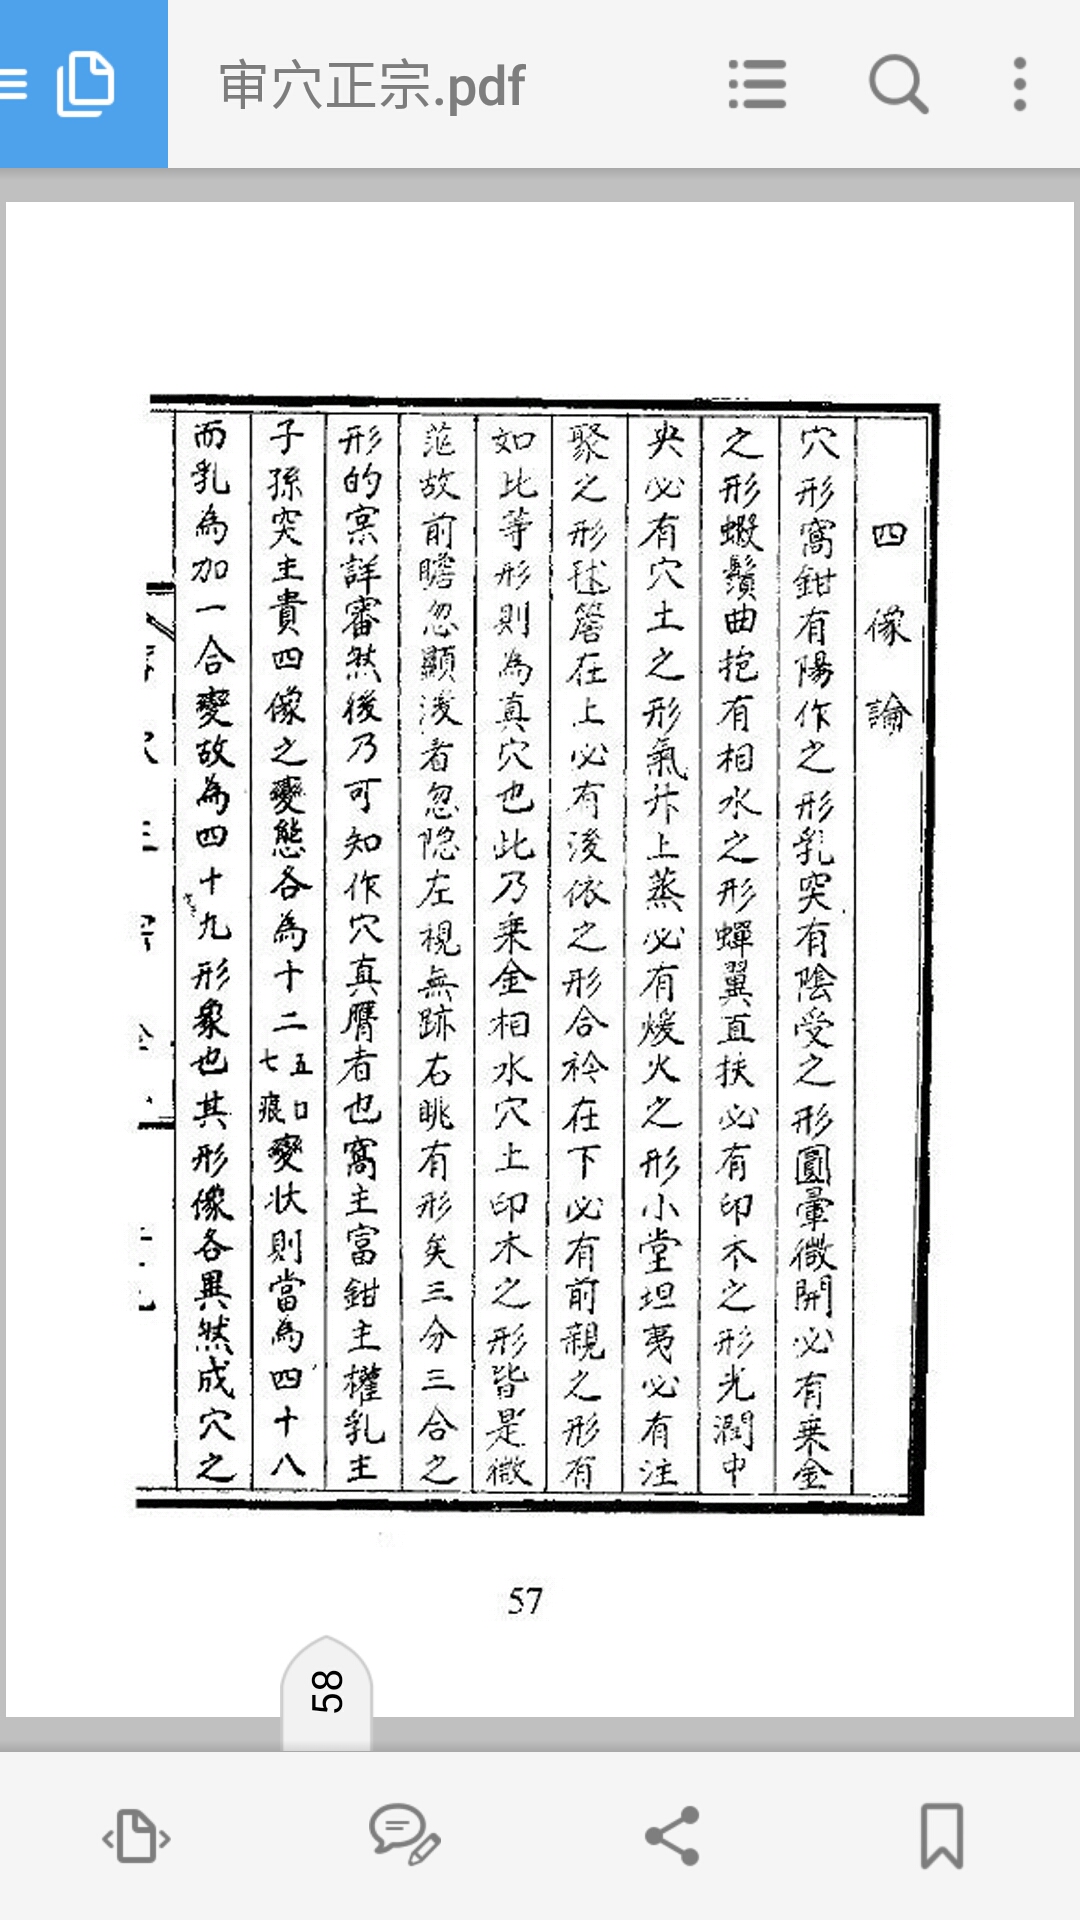 审穴正宗.pdf
四像論
穴形窩鉗有陽作之形乳突有陰受之形圓暈微開必有乗金
之形蝦鬚曲抱有相水之形蟬翼直扶必有印木之形光潤中
央必有穴土之形氣升上蒸必有煖火之形小堂坦夷必有注
聚之形毬簷在上必有後依之形合衿在下必有前親之形有
如比等形則為真穴也此乃乗金相水穴土印木之形皆是微
茫故前瞻忽顯後看忽隐左視無跡右眺有形矣三分三合之
形的寀詳審然後乃可知作穴真贗者也窩主富鉗主權乳主
子孫突主貴四像之變態各為十二五口七痕變状則當為四十八
而乳為加一合變故為四十九形象也其形像各異然成穴之
57
58